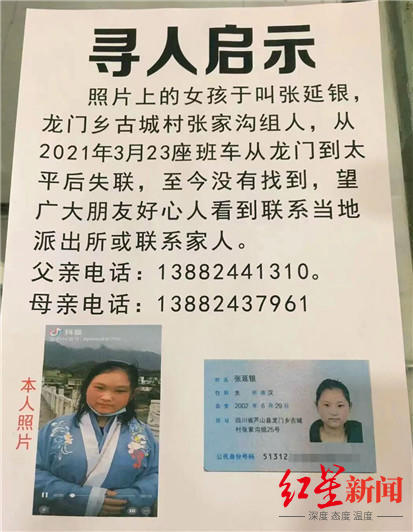 寻人启示
照片上的女孩于叫张延银，
龙门乡古城村张家沟组人，从
2021年3月23座班车从龙门到太
平后失联，至今没有找到，望
广大朋友好心人看到联系当地
派出所或联系家人。
父亲电话：13882441310。
母亲电话：13882437961
本人照片
抖音
姓名 张延银
性别 女 民族 汉
出生 2002 年 6 月 29 日
住址 四川省芦山县龙门乡古城
村张家沟组25号
公民身份号码 51312
红星新闻
深度 态度 温度